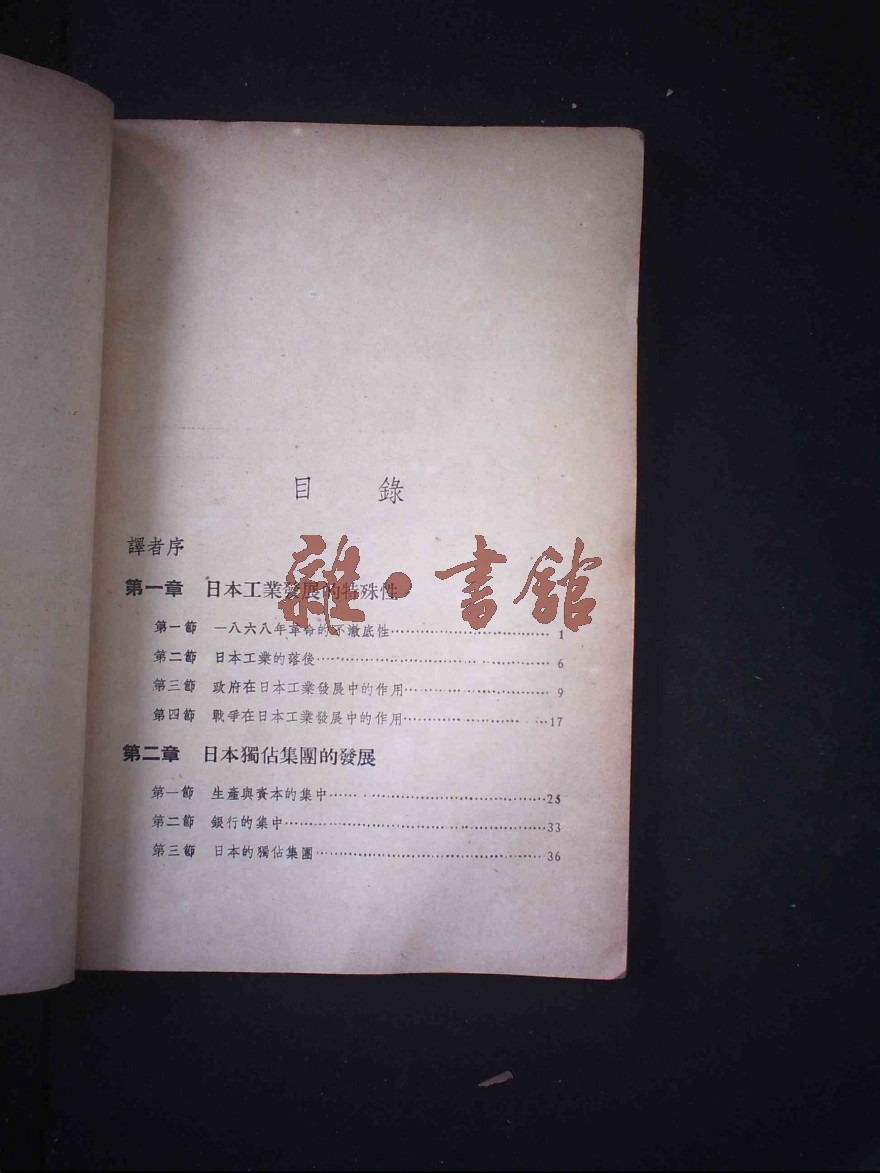 目 錄
譯者序
第一章 日本工業發展的特殊性
第一節 一八六八年革命的不澈底性 1
第二節 日本工業的落後 6
第三節 政府在日本工業發展中的作用 9
第四節 戰爭在日本工業發展中的作用 17
第二章 日本獨佔集團的發展
第一節 生產與資本的集中 25
第二節 銀行的集中 33
第三節 日本的獨佔集團 36
雜·書館